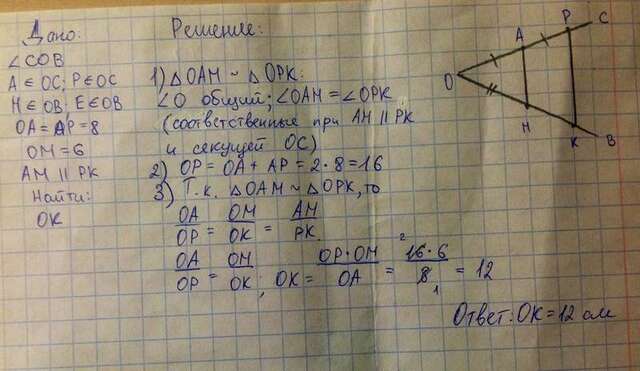 Дано:
∠COB
A ∈ OC; P ∈ OC
H ∈ OB; E ∈ OB
OA = AP = 8
OM = 6
AM ∥ PK
Найти:
OK
Решение:
1) △OAM ~ △OPK:
∠O общий; ∠OAM = ∠OPK
(соответственные при AM ∥ PK
и секущей OC)
2) OP = OA + AP = 2·8 = 16
3) Т.к. △OAM ~ △OPK, то
OA/OP = OM/OK = AM/PK.
OA/OP = OM/OK; OK = OP·OM/OA = 16·6/8 = 12
2
1
Ответ: OK = 12 см
O
A
P
C
H
K
B